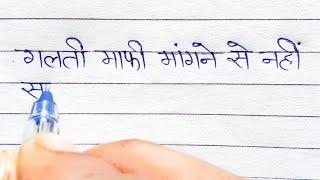 गलती माफी मांगने से नहीं
स